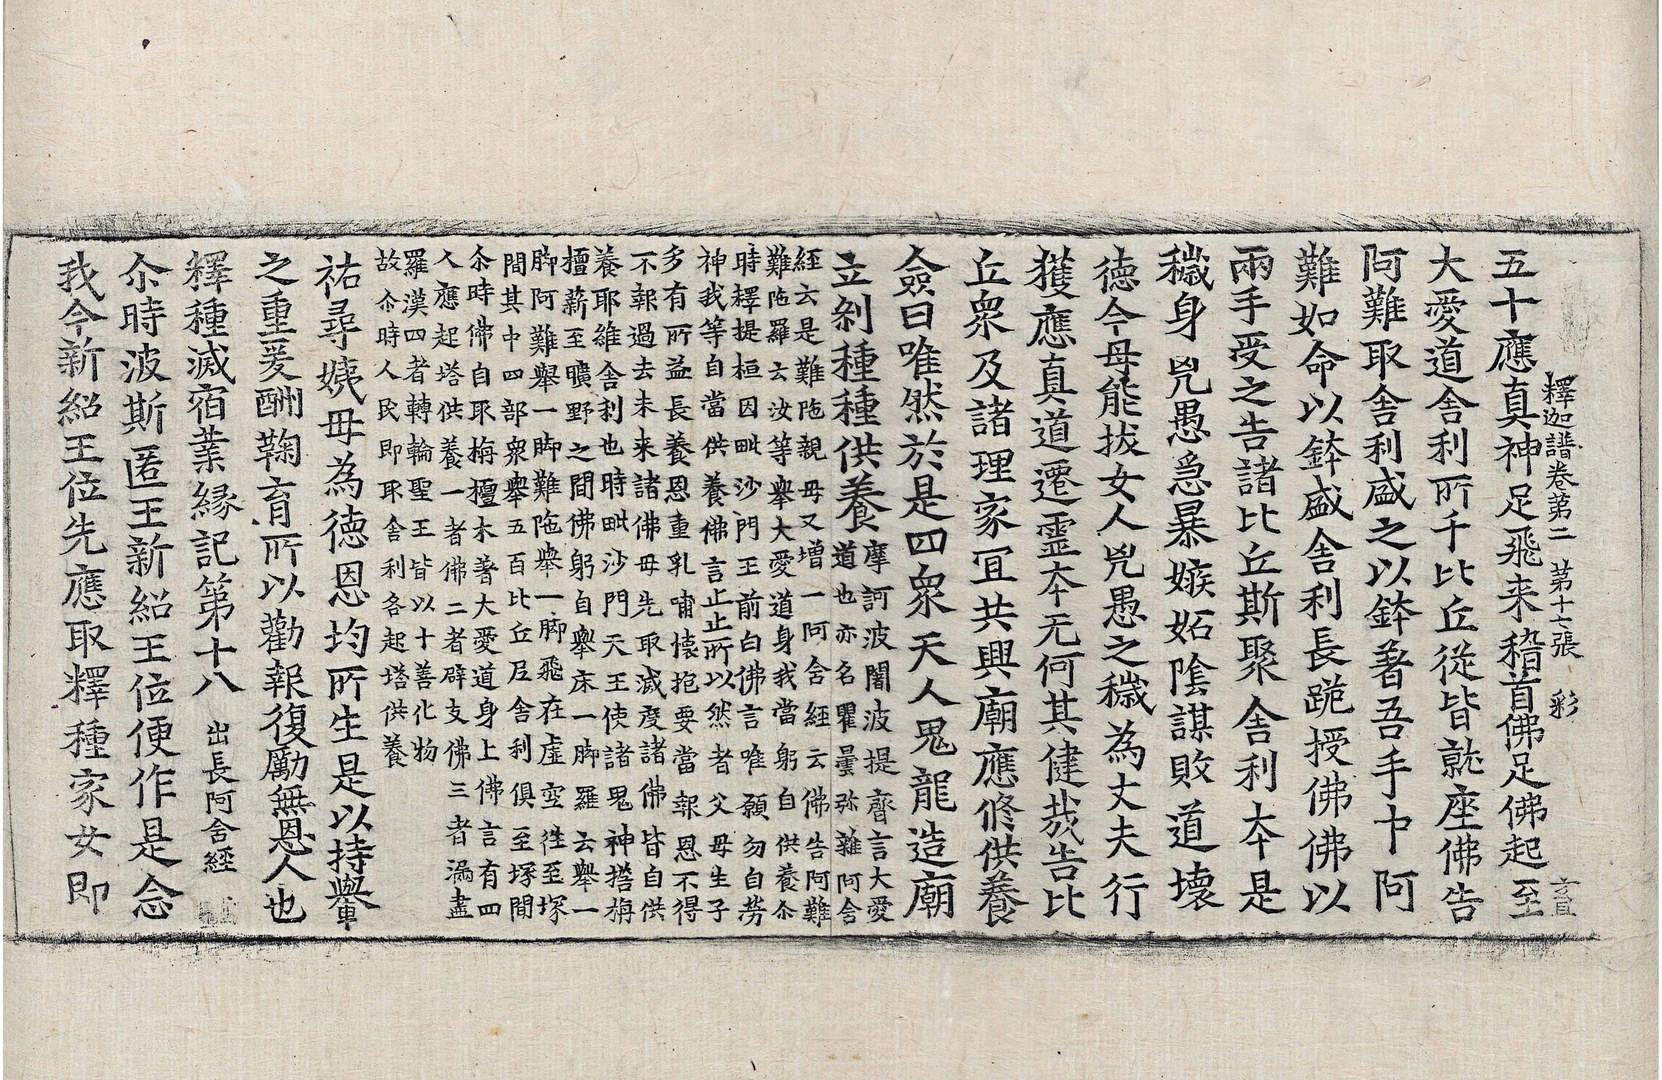 釋迦譜卷第二 第十七張 彩
五十應真神足飛来稽首佛足佛起至
大愛道舎利所千比丘從皆就座佛告
阿難取舎利盛之以鉢著吾手中阿
難如命以鉢盛舎利長跪授佛佛以
兩手受之告諸比丘斯聚舎利本是
穢身兇愚急暴嫉妬陰謀敗道壞
德今母能拔女人兇愚之穢為丈夫行
獲應真道遷靈本无何其健哉告比
丘衆及諸理家冝共興廟應修供養
僉曰唯然於是四衆天人鬼龍造廟
立剎種種供養
摩訶波闍波提齊言大愛
道也亦名瞿曇弥難阿含
經云是難陁親母又增一阿含經云佛告阿難
難陁羅云汝等舉大愛道身我當躬自供養尒
時釋提桓因毗沙門王前白佛言唯願勿自勞
神我等自當供養佛言止止所以然者父母生子
多有所益長養恩重乳哺懷抱要當報恩不得
不報過去未來諸佛母先取滅度諸佛皆自供
養耶維舎利也時毗沙門天王使諸鬼神擔栴
檀薪至曠野之間佛躬自舉床一脚羅云舉一
脚阿難舉一脚難陁舉一脚飛在虛空往至塚
間其中四部衆舉五百比丘尼舎利俱至塚間
尒時佛自取栴檀木著大愛道身上佛言有四
人應起塔供養一者佛二者辟支佛三者漏盡
羅漢四者轉輪聖王皆以十善化物
故尒時人民即取舎利各起塔供養
祐尋姨母為德恩均所生是以持轝
之重爰酬鞠育所以勸報復勵無恩人也
釋種滅宿業緣記第十八 出長阿含經
尒時波斯匿王新紹王位便作是念
我今新紹王位先應取釋種家女即